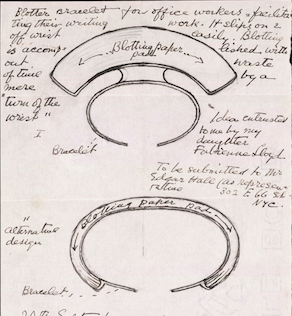 Blotter Bracelet for office workers - facilita
ting their writing work. It slips on &
off wrist easily. Blotting
is accomp- lished with
out waste
of time by a
mere
"turn of the
wrist"
Blotting paper
pad
I
Bracelet
Idea entrusted
to me by my
daughter
Fabienne Lloyd
To be submitted to Mr
Edgar Hall (as represen-
tative 302 E 66 St-
NYC.
Blotting paper pad
"
alternative
design
Bracelet